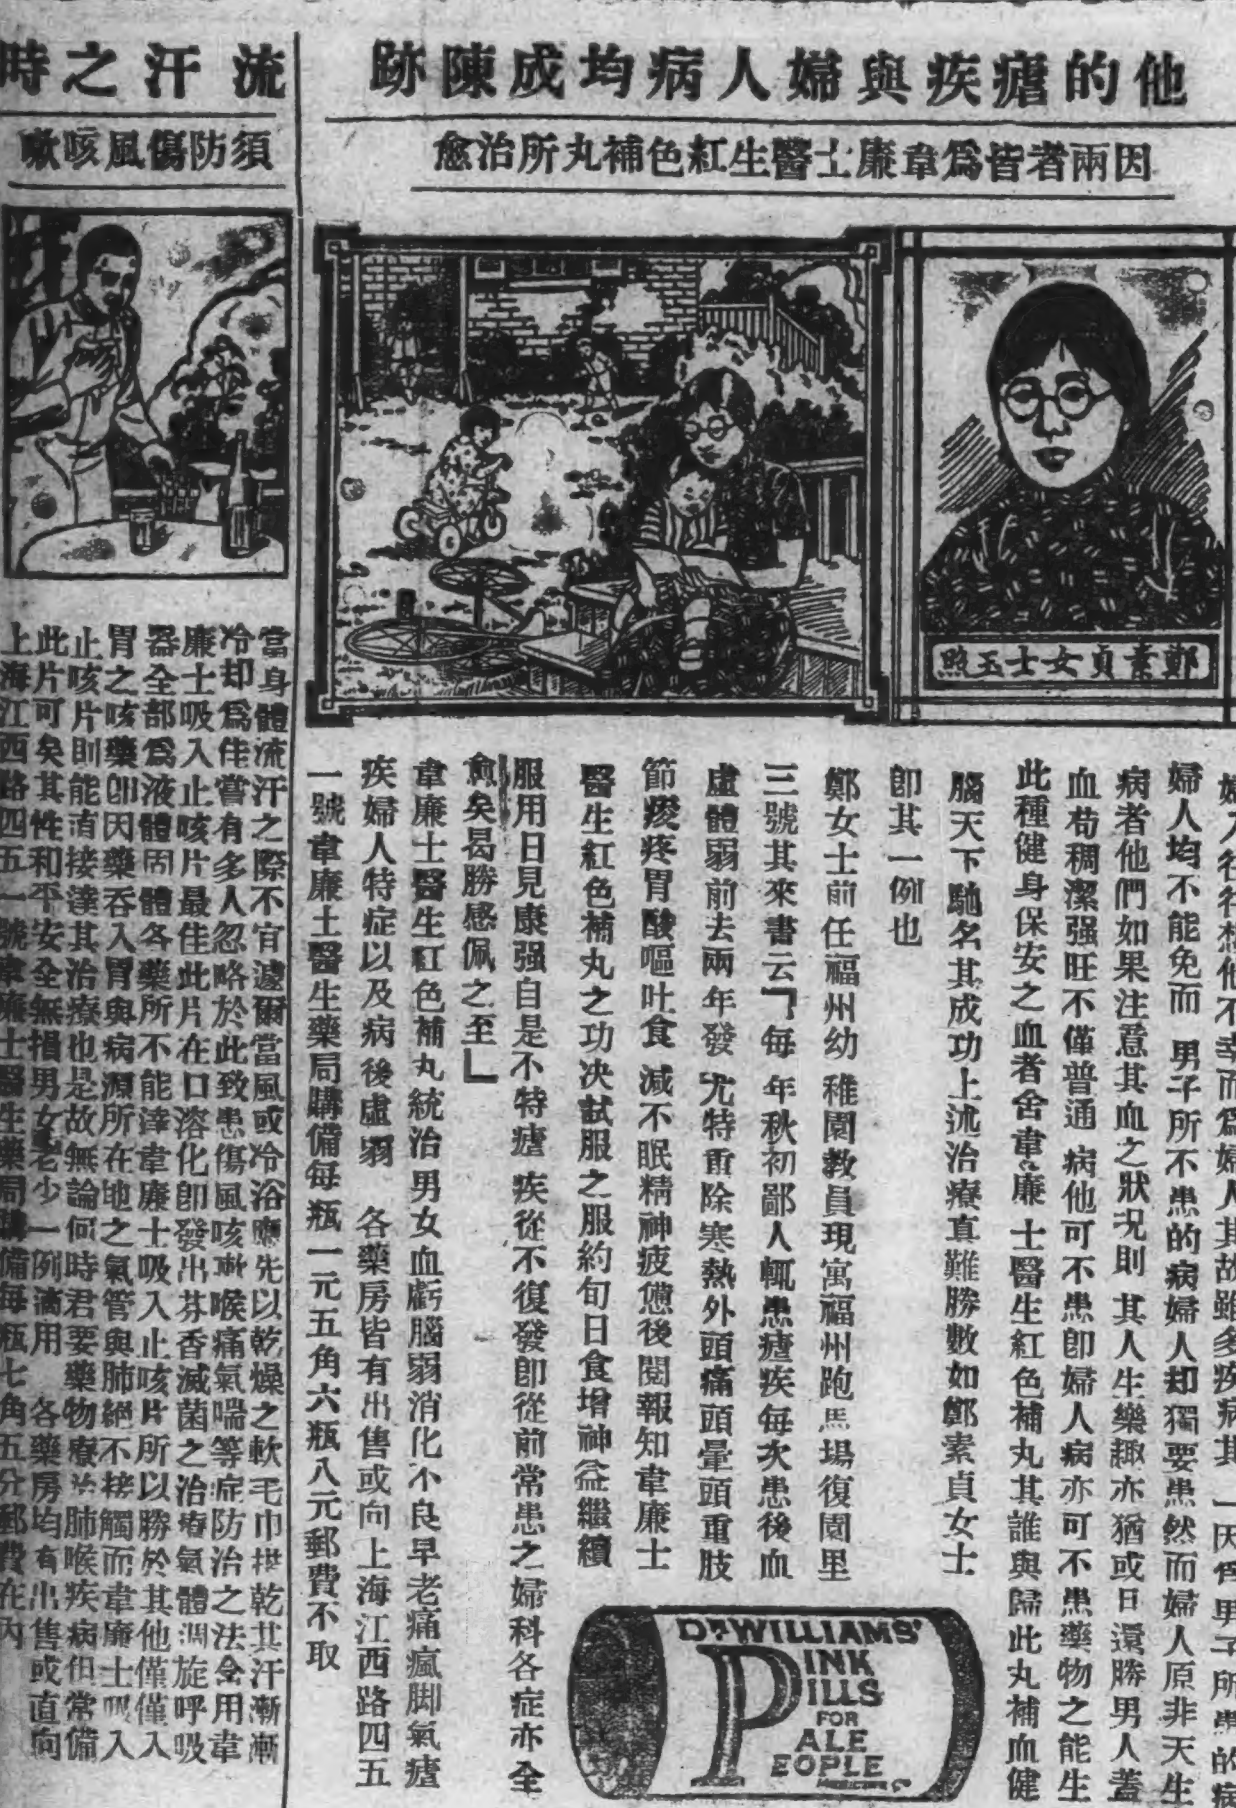 他的瘧疾與婦人病均成陳跡
因兩者皆爲韋廉士醫生紅色補丸所治愈
鄭素貞女士玉照
婦人往往想他不幸而爲婦人其故雖多疾病其一因爲男子所患的病
婦人均不能免而男子所不患的病婦人却獨要患然而婦人原非天生
病者他們如果注意其血之狀況則其人生樂趣亦猶或日還勝男人蓋
血苟稠潔强旺不僅普通病他可不患卽婦人病亦可不患藥物之能生
此種健身保安之血者舍韋廉士醫生紅色補丸其誰與歸此丸補血健
腦天下馳名其成功上述治療眞難勝數如鄭素貞女士
卽其一例也
鄭女士前任福州幼稚園教員現寓福州跑馬場復園里
三號其來書云「每年秋初鄙人輒患瘧疾每次患後血
虛體弱前去兩年發尤特重除寒熱外頭痛頭暈頭重肢
節痠疼胃酸嘔吐食減不眠精神疲憊後閱報知韋廉士
醫生紅色補丸之功决試服之服約旬日食增神益繼續
服用日見康强自是不特瘧疾從不復發卽從前常患之婦科各症亦全
愈矣曷勝感佩之至」
韋廉士醫生紅色補丸統治男女血虧腦弱消化不良早老痛瘋脚氣瘧
疾婦人特症以及病後虛弱 各藥房皆有出售或向上海江西路四五
一號韋廉士醫生藥局購備每瓶一元五角六瓶八元郵費不取
DR. WILLIAMS'
PINK
PILLS
FOR
PALE
PEOPLE
MEDICINE Co
流汗之時
須防傷風咳嗽
當身體流汗之際不宜遽爾當風或冷浴應先以乾燥之軟毛巾拭乾其汗漸漸
冷却爲佳嘗有多人忽略於此致患傷風咳嗽喉痛氣喘等症防治之法含用韋
廉士吸入止咳片最佳此片在口溶化卽發出芬香滅菌之治療氣體週旋呼吸
器全部爲液體固體各藥所不能達韋廉士吸入止咳片所以勝於其他僅僅入
胃之咳藥卽因藥吞入胃與病源所在地之氣管與肺絕不接觸而韋廉士吸入
止咳片則能直接達其治療也是故無論何時君要藥物療治肺喉疾病但常備
此片可矣其性和平安全無損男女老少一例適用 各藥房均有出售或直向
上海江西路四五一號韋廉士醫生藥局購備每瓶七角五分郵費在內